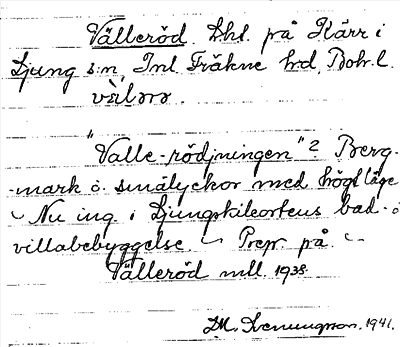 Välleröd. Lhl. på Kärr i
Ljung sn, Inl. Fräkne hd, Boh. l.
vèlərə.
"Valle-rödjningen"? Berg-
-mark o. smålyckor med högt läge
Nu ing. i Ljungskileortens bad- o
villabebyggelse. Prep. på.
Välleröd mll. 1938.
1941.